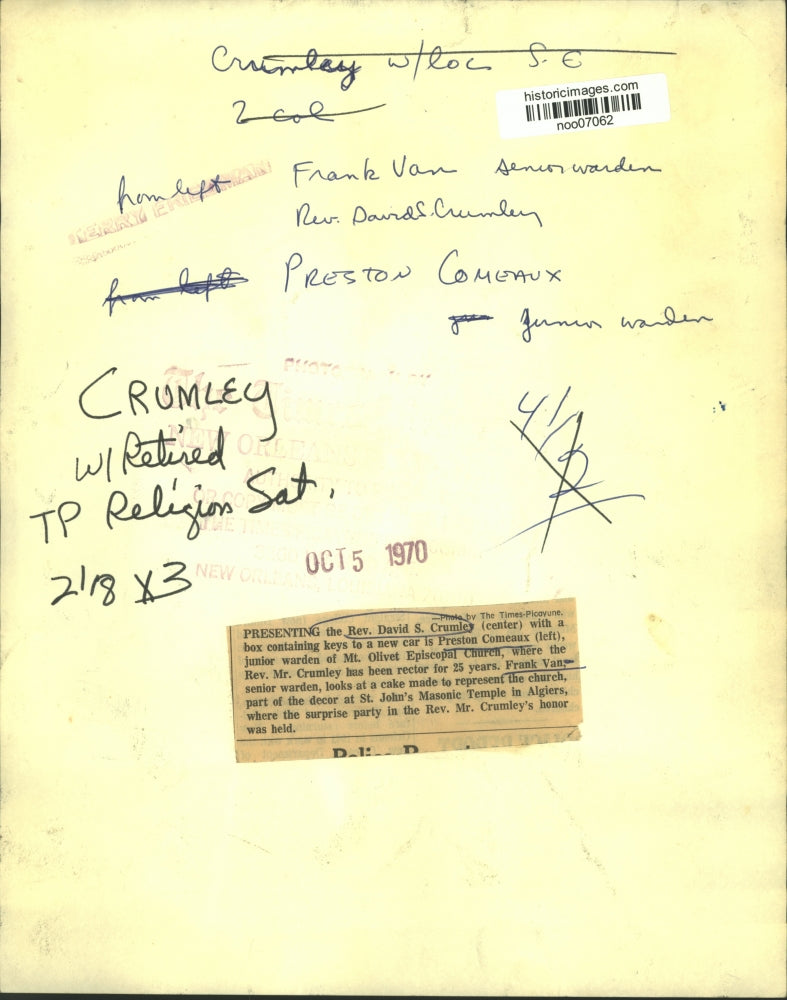 Crumley w/loc S-E
2 col
historicimages.com
noo07062
from left Frank Van senior warden
Rev. David S. Crumley
from left PRESTON COMEAUX
junior warden
CRUMLEY
W/ Retired
TP Religion Sat.
2 1/8 X3
4/
OCT 5 1970
NEW ORLEANS
—Photo by The Times-Picayune.
PRESENTING the Rev. David S. Crumley (center) with a
box containing keys to a new car is Preston Comeaux (left),
junior warden of Mt. Olivet Episcopal Church, where the
Rev. Mr. Crumley has been rector for 25 years. Frank Van,
senior warden, looks at a cake made to represent the church,
part of the decor at St. John's Masonic Temple in Algiers,
where the surprise party in the Rev. Mr. Crumley's honor
was held.